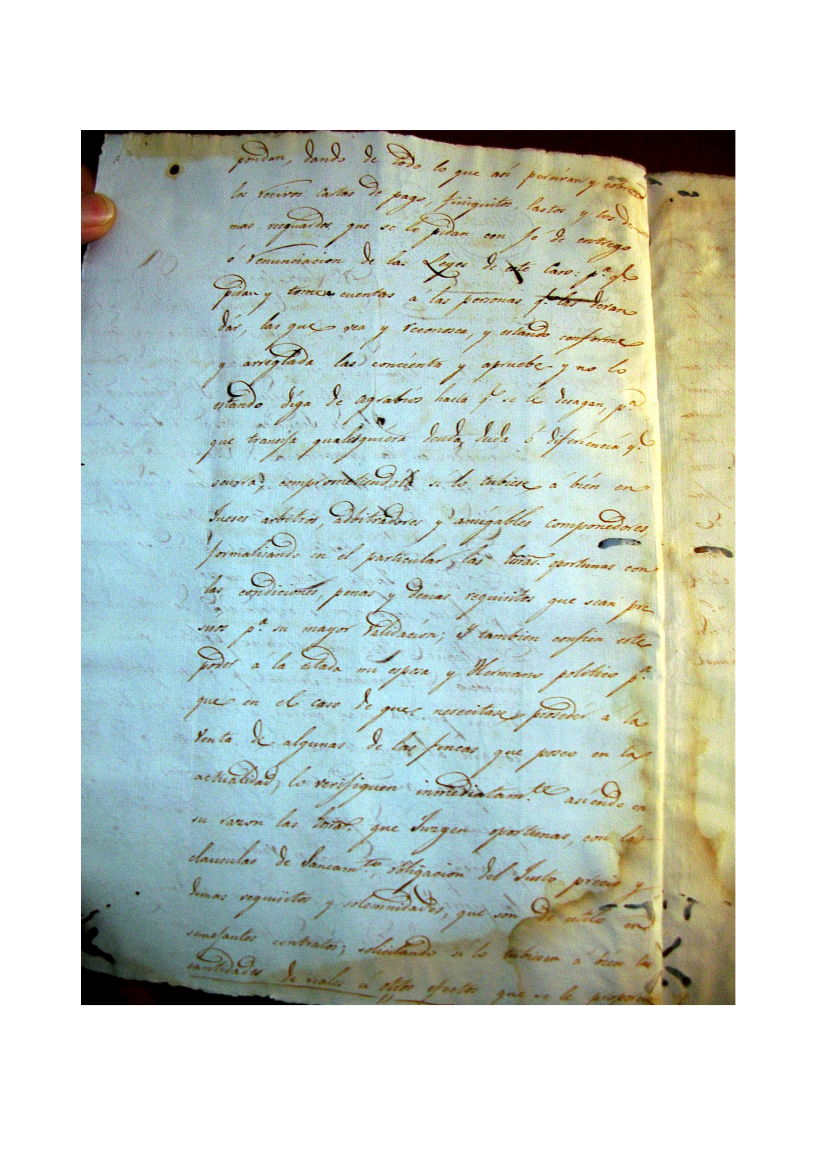 pondan, dando de todo lo que asi perciran y cobren
los recivos cartas de pago, finiquitos, lastos y los de
mas resguardos que se lo pidan con fe de entrego
ó renunciacion de las Leyes de este caso: p.ª q.e
pidan y tomen cuentas a las personas q.e las devan
dár, las que vea y reconosca, y estando conforme
y arreglada las concienta y apruebe y no lo
estando diga de agrabios hasta q.e se le desagan, p.ª
que transija qualesquiera deuda, duda ó diferiencia q.e
ocurra, comprometiendola si lo tubiese a bien en
Jueses arbitros, adbitradores y amigables componedores
formalisando en el particular las oportunas con
las condiciones, penas y demas requisitos que sean pre
sisos p.ª su mayor validacion; Y tambien confiero este
poder a la citada mi esposa, y Hermano politico p.ª
que en el caso de que nesecitase proseder á la
venta de algunas de las fincas que poseo en la
actualidad, lo verifiquen inmediatam.te asiendo en
su razon las que Jusgen oportunas, con las
clausulas de Saneam.to, obligacion del Justo precio y
demas requisitos y solemnidades, que son de estilo en
semejantes contratos; solicitando si lo tubiesen a bien las
cantidades de reales ú otros efectos que se le proporcio